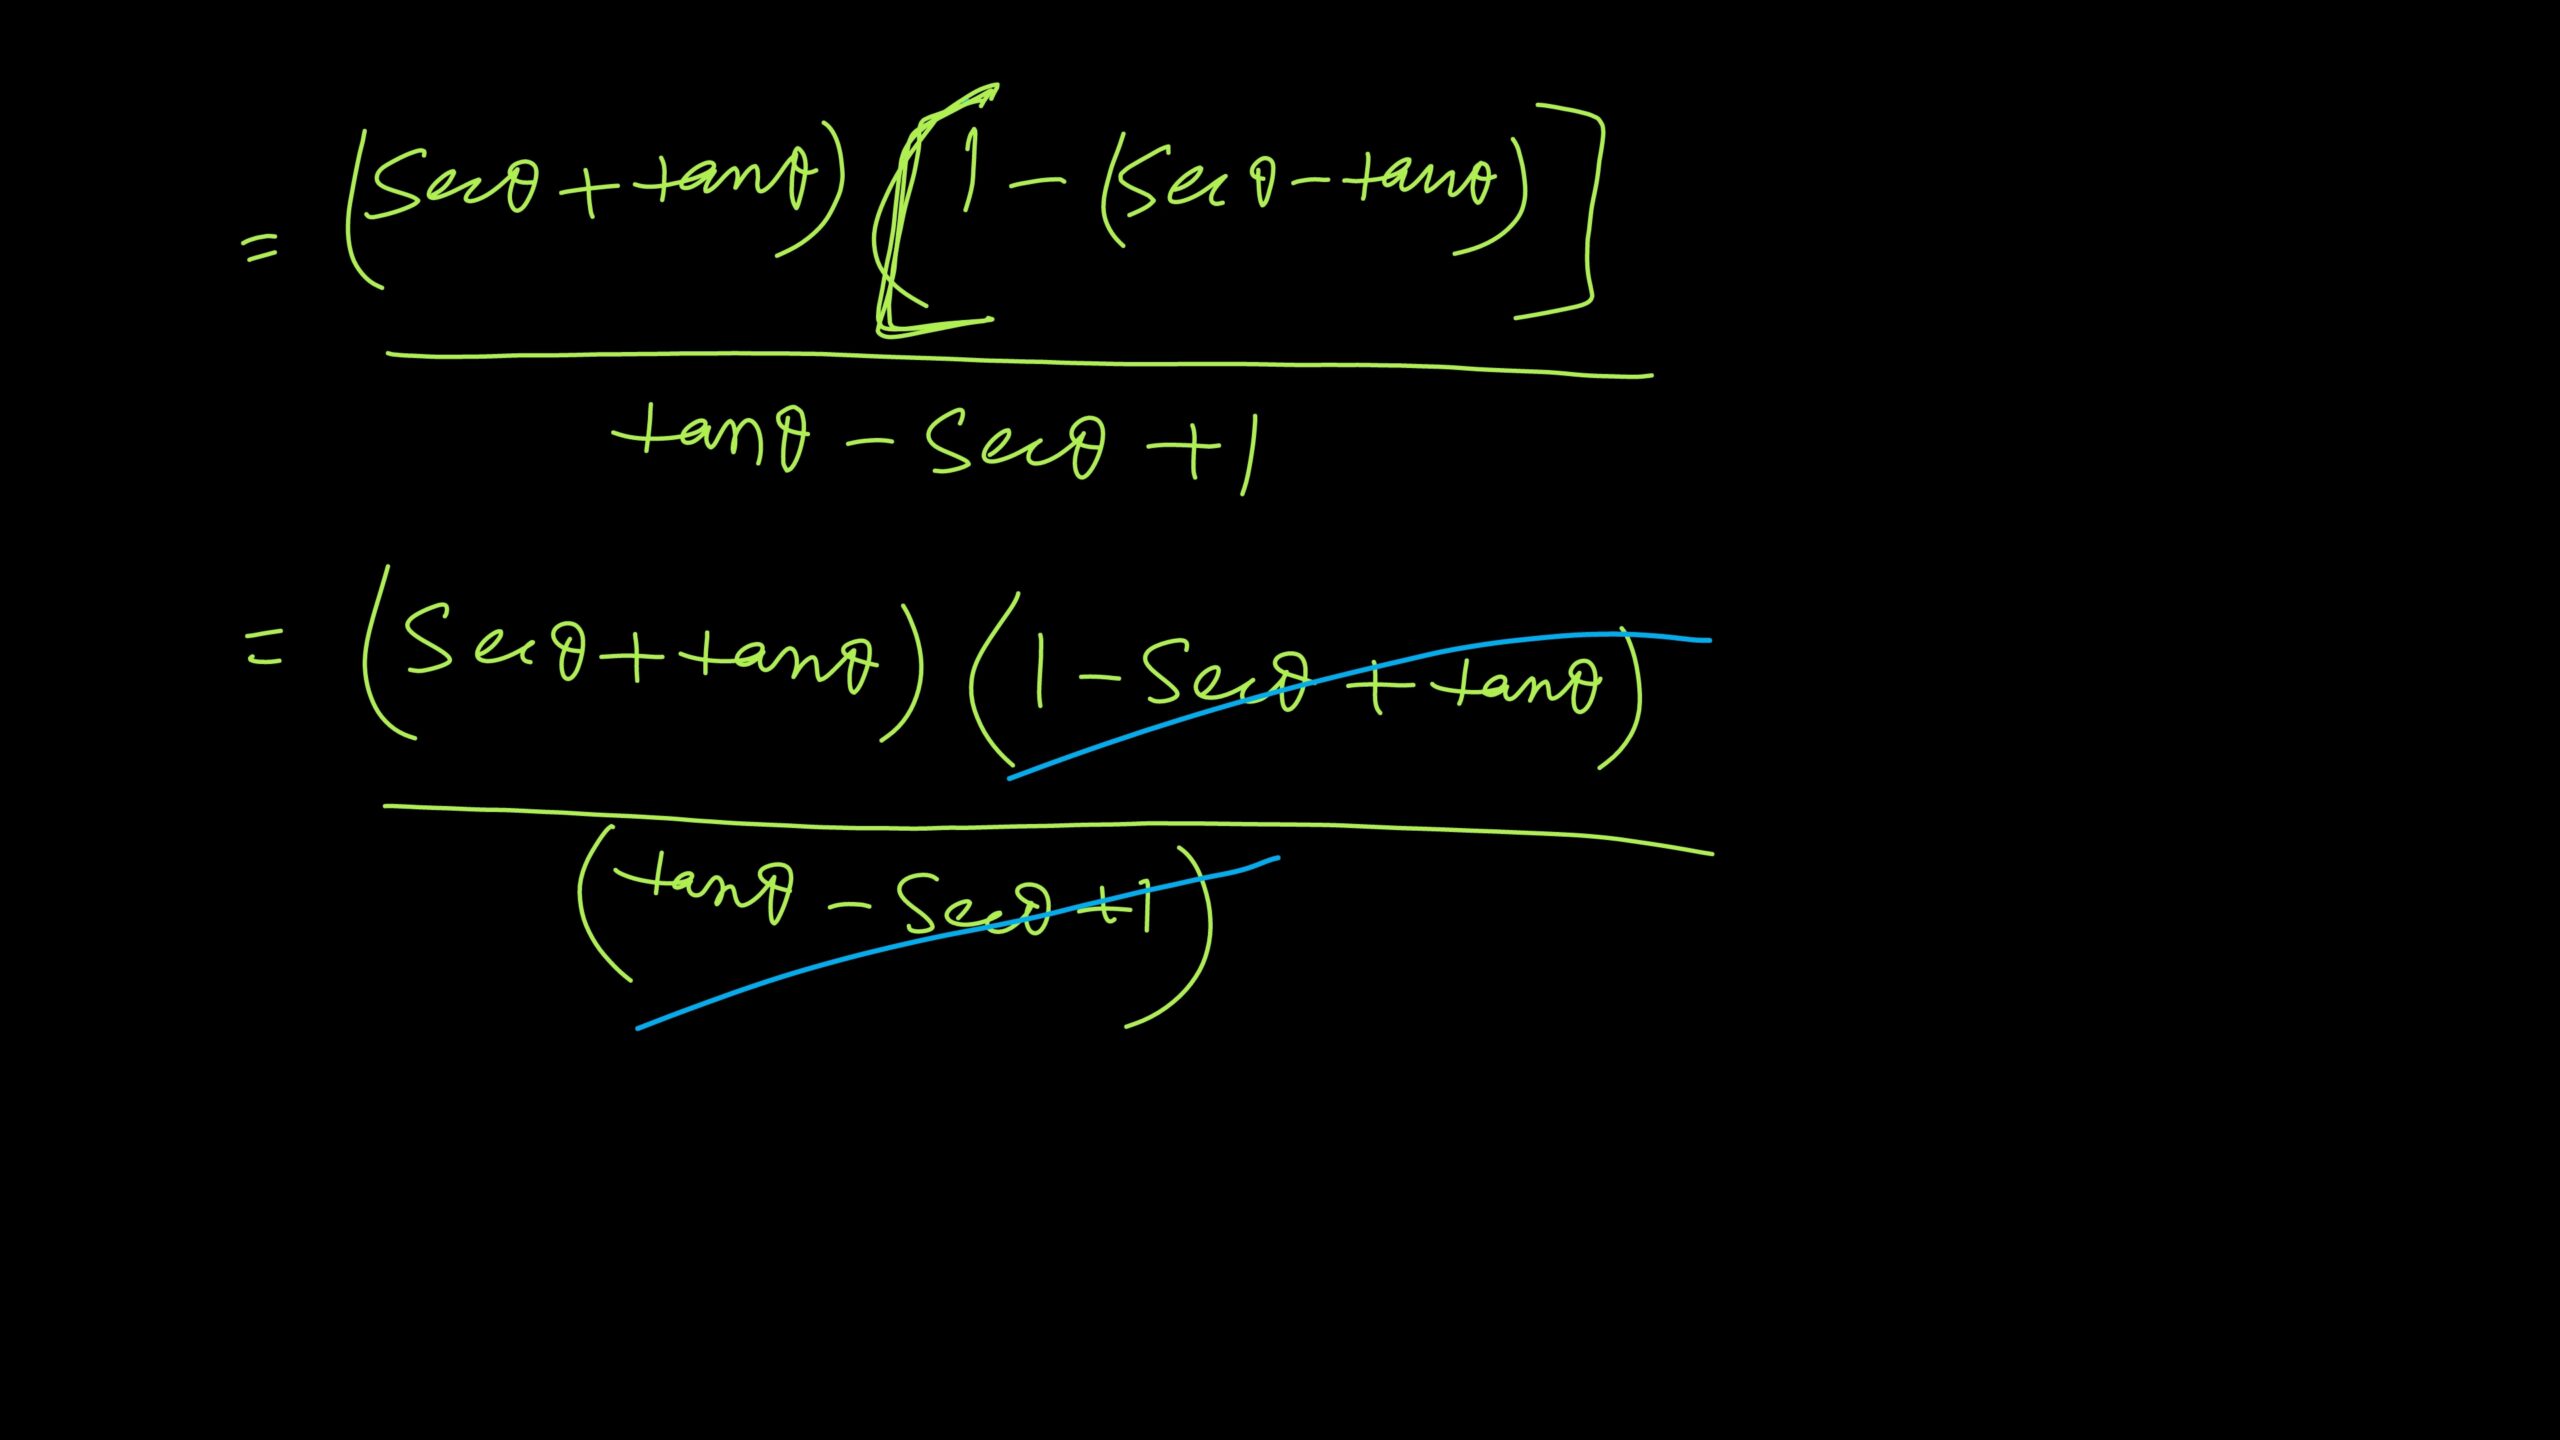 = (Secθ + tanθ) [1 - (Secθ - tanθ)]
tanθ - Secθ + 1
= (Secθ + tanθ) (1 - Secθ + tanθ)
(tanθ - Secθ + 1)